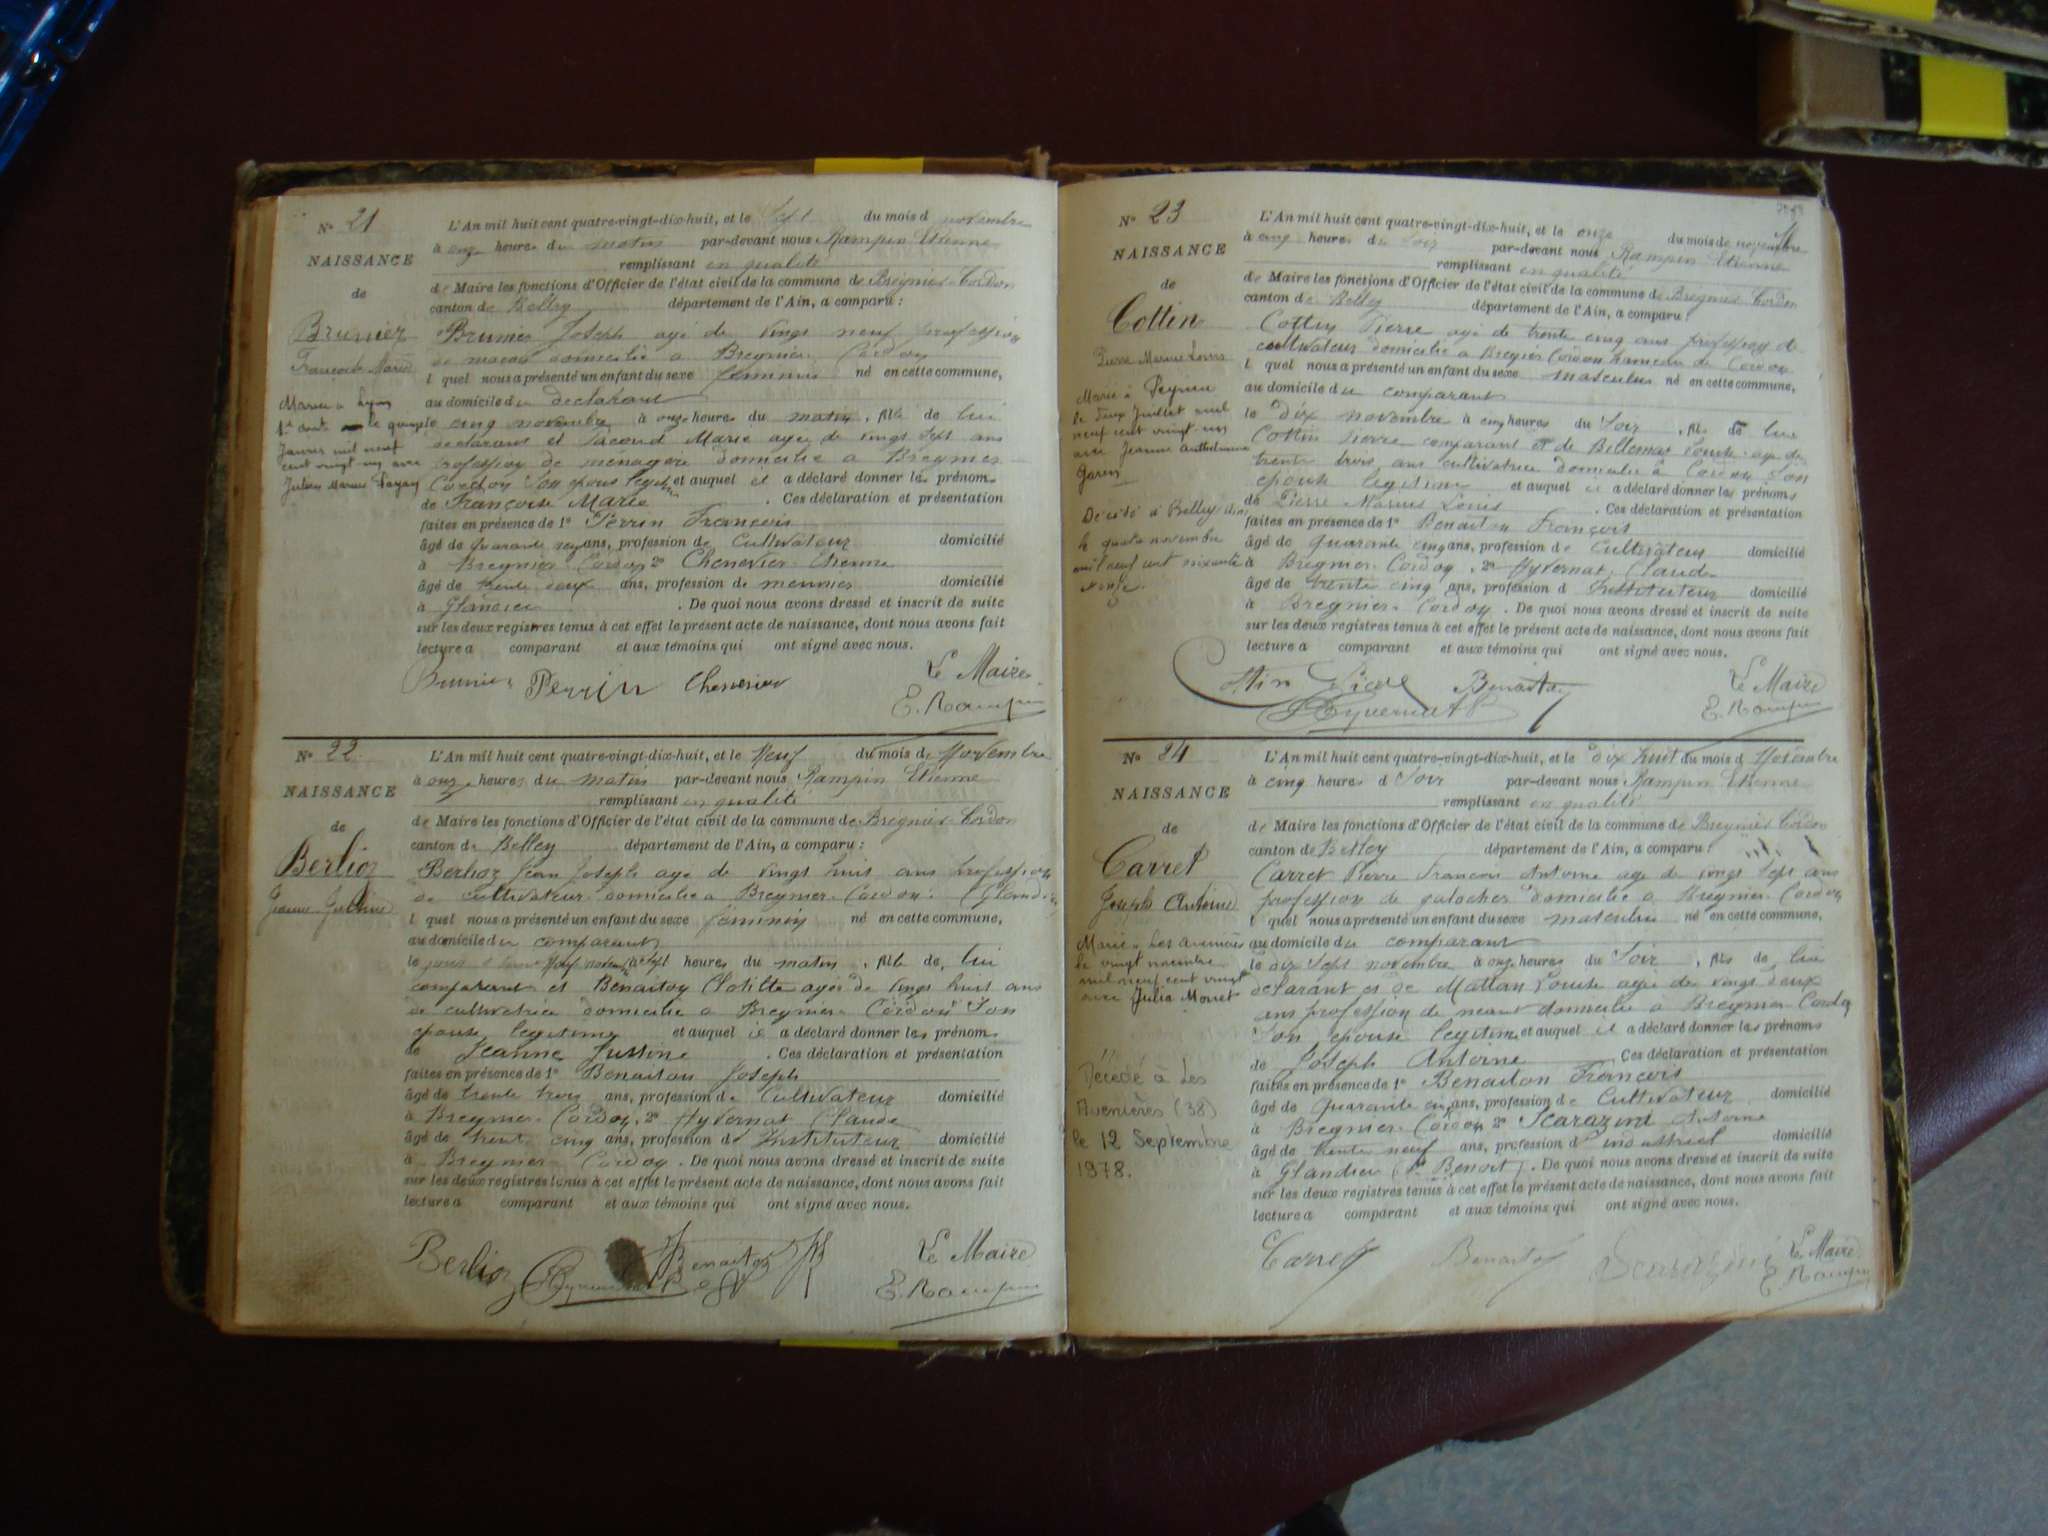 N° 21
NAISSANCE
de
Brunier
Françoise Marie
Mariée à Lyon
Janvier mil neuf
cent vingt un avec
L'An mil huit cent quatre-vingt-dix-huit, et le Sept du mois d novembre
à onze heures du matin par-devant nous Rampin Etienne
remplissant en qualité
de Maire les fonctions d'Officier de l'état civil de la commune de Bregnier-Cordon
canton de Belley département de l'Ain, a comparu :
Brunier Joseph agé de vingt neuf profession
de maçon domicilié à Bregnier Cordon
l quel nous a présenté un enfant du sexe féminin né en cette commune,
au domicile du declarant
le cinq novembre à onze heures du matin, fille de lui
declarant et Marie agée de vingt sept ans
profession de ménagère domiciliée à Bregnier
Cordon Son epouse legitime et auquel il a déclaré donner les prénoms
de Françoise Marie. Ces déclaration et présentation
faites en présence de 1° Perrin François
âgé de quarante ans, profession de Cultivateur domicilié
à Bregnier Cordon 2° Chenevier Etienne
âgé de trente deux ans, profession de domicilié
à Glandieu. De quoi nous avons dressé et inscrit de suite
sur les deux registres tenus à cet effet le présent acte de naissance, dont nous avons fait
lecture a comparant et aux témoins qui ont signé avec nous.
Brunier Perrin Chenevier Le Maire
E. Rampin
N° 22
NAISSANCE
de
Berlioz
Jeanne Justine
L'An mil huit cent quatre-vingt-dix-huit, et le Neuf du mois de Novembre
à onze heures du matin par-devant nous Rampin Etienne
remplissant en qualité
de Maire les fonctions d'Officier de l'état civil de la commune de Bregnier-Cordon
canton de Belley département de l'Ain, a comparu :
Berlioz Jean Joseph agé de vingt huit ans profession
de cultivateur domicilié à Bregnier-Cordon
l quel nous a présenté un enfant du sexe féminin né en cette commune,
au domicile du comparant
le sept heures du matin, fille de lui
comparant et Benaiton Clotilde agée de vingt huit ans
de cultivatrice domiciliée à Bregnier Cordon Son
epouse legitime et auquel il a déclaré donner les prénoms
de Jeanne Justine. Ces déclaration et présentation
faites en présence de 1° Benaiton Joseph
âgé de trente trois ans, profession de Cultivateur domicilié
à Bregnier-Cordon, 2° Ayvernat Claude
âgé de trente cinq ans, profession de Instituteur domicilié
à Bregnier Cordon. De quoi nous avons dressé et inscrit de suite
sur les deux registres tenus à cet effet le présent acte de naissance, dont nous avons fait
lecture a comparant et aux témoins qui ont signé avec nous.
Berlioz Benaiton Le Maire
E. Rampin
N° 23
NAISSANCE
de
Cottin
Pierre Marius Louis
Marié à Peyrieu
le deux Juillet mil
neuf cent vingt un
avec Jeanne Anthelmine
Décédé à Belley
le quatre novembre
mil neuf cent soixante
L'An mil huit cent quatre-vingt-dix-huit, et le onze du mois de novembre
à cinq heures du Soir par-devant nous Rampin Etienne
remplissant en qualité
de Maire les fonctions d'Officier de l'état civil de la commune de Bregnier Cordon
canton de Belley département de l'Ain, a comparu :
Cottin Pierre agé de trente cinq ans profession de
cultivateur domicilié à Bregnier Cordon hameau de Cordon
l quel nous a présenté un enfant du sexe masculin né en cette commune,
au domicile du comparant
le dix novembre à cinq heures du Soir, fils de lui
Cottin Pierre comparant et de Billemaz Louise agée de
trente trois ans cultivatrice domiciliée à Cordon Son
epouse legitime et auquel il a déclaré donner les prénoms
de Pierre Marius Louis. Ces déclaration et présentation
faites en présence de 1° Benaiton François
âgé de quarante cinq ans, profession de Cultivateur domicilié
à Bregnier-Cordon, 2° Ayvernat Claude
âgé de trente cinq ans, profession d Instituteur domicilié
à Bregnier-Cordon. De quoi nous avons dressé et inscrit de suite
sur les deux registres tenus à cet effet le présent acte de naissance, dont nous avons fait
lecture a comparant et aux témoins qui ont signé avec nous.
Cottin Benaiton Le Maire
Ayvernat E. Rampin
N° 24
NAISSANCE
de
Carret
Joseph Antoine
Marié à Les Avenières
le vingt novembre
mil neuf cent vingt
avec Julia Monet
Décédé à Les
Avenières (38)
le 12 Septembre
1978.
L'An mil huit cent quatre-vingt-dix-huit, et le dix huit du mois d Novembre
à cinq heures d Soir par-devant nous Rampin Etienne
remplissant en qualité
de Maire les fonctions d'Officier de l'état civil de la commune de Bregnier Cordon
canton de Belley département de l'Ain, a comparu :
Carret Pierre François Antoine agé de vingt sept ans
profession de galocher domicilié à Bregnier-Cordon
l quel nous a présenté un enfant du sexe masculin né en cette commune,
au domicile du comparant
le dix sept novembre à onze heures du Soir, fils de lui
déclarant et de Mattan Louise agée de vingt deux
ans profession de neant domiciliée à Bregnier Cordon
Son epouse legitime et auquel il a déclaré donner les prénoms
de Joseph Antoine. Ces déclaration et présentation
faites en présence de 1° Benaiton François
âgé de Quarante cinq ans, profession de Cultivateur domicilié
à Bregnier-Cordon 2° Scarazini Antoine
âgé de trente neuf ans, profession d industriel domicilié
à Glandieu (St Benoit). De quoi nous avons dressé et inscrit de suite
sur les deux registres tenus à cet effet le présent acte de naissance, dont nous avons fait
lecture a comparant et aux témoins qui ont signé avec nous.
Carret Benaiton Scarazini Le Maire
E. Rampin